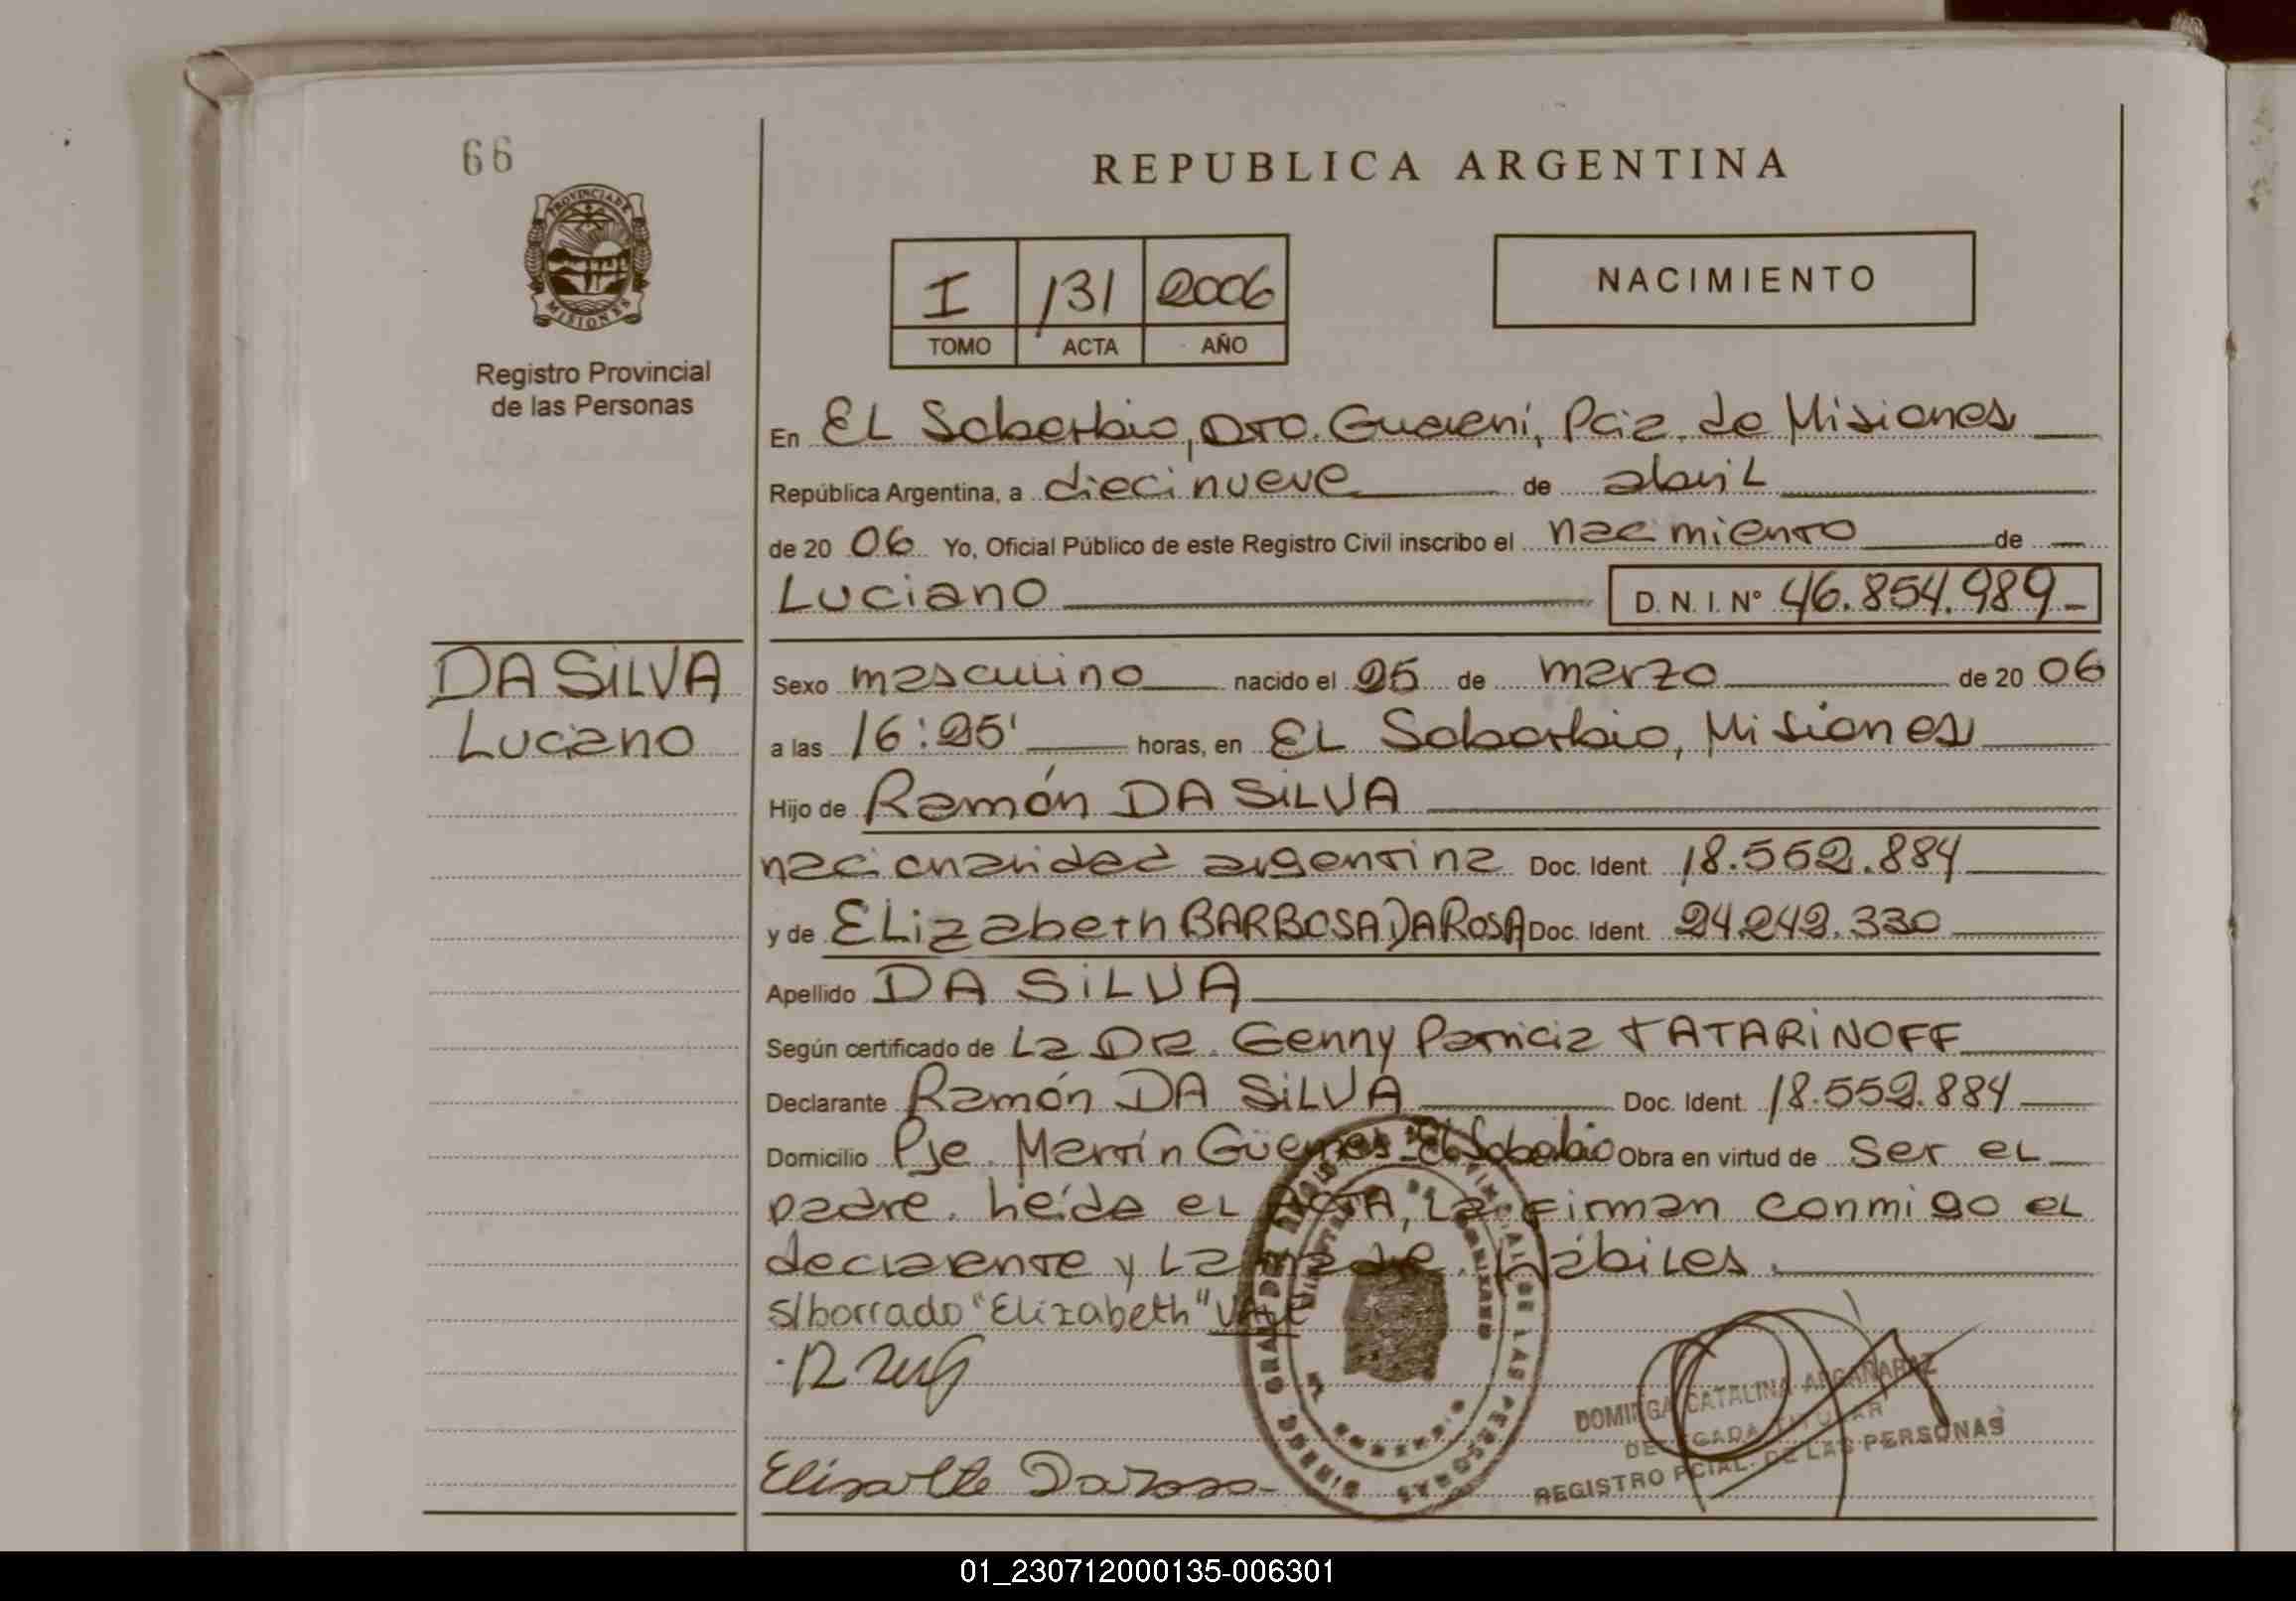 66
PROVINCIA DE
MISIONES
Registro Provincial
de las Personas
REPUBLICA ARGENTINA
I 131 2006
TOMO ACTA AÑO
NACIMIENTO
En EL Soberbio, Dto. Guaraní, Pcia. de Misiones
República Argentina, a diecinueve de abril
de 20 06 Yo, Oficial Público de este Registro Civil inscribo el nacimiento de
Luciano D. N. I. N° 46.854.989
DA SILVA
Luciano
Sexo masculino nacido el 25 de marzo de 20 06
a las 16:25' horas, en EL Soberbio, Misiones
Hijo de Ramón DA SILVA
nacionalidad argentina Doc. Ident. 18.552.884
y de ELizabeth BARBOSA DA ROSA Doc. Ident. 24.242.330
Apellido DA SILVA
Según certificado de La DRa. Genny Patricia TATARINOFF
Declarante Ramón DA SILVA Doc. Ident. 18.552.884
Domicilio Pje. Martín Güemes - El Soberbio Obra en virtud de ser el
padre. Leída el ACTA, la firman conmigo el
declarante y la madre. Hábiles.
s/borrado "Elizabeth" Vale
Elisabete Da Rosa
DOMINGA CATALINA ARGAÑARAZ
DELEGADA TITULAR
REGISTRO PCIAL. DE LAS PERSONAS
01_230712000135-006301